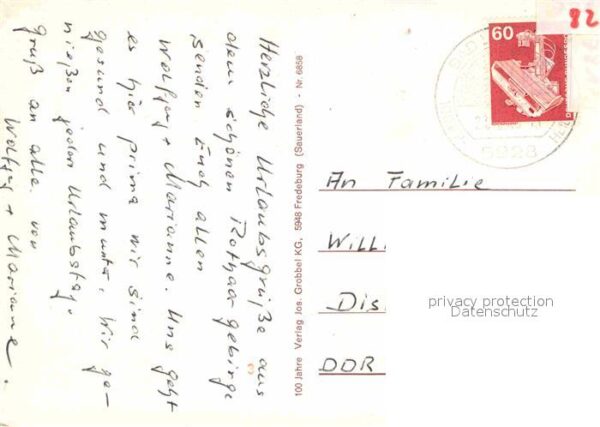 Herzliche Urlaubsgrüße aus
dem schönen Rothaargebirge
senden Euch allen
Wolfgang + Marianne. Uns geht
es hier prima wir sind
gesund und munter, wir ge-
nießen jeden Urlaubstag.
Gruß an alle von
Wolfgang + Marianne.
100 Jahre Verlag Jos. Grobbel KG, 5948 Fredeburg (Sauerland) - Nr. 6858
60
82
5928
An Familie
Will
Dis
DDR
privacy protection
Datenschutz